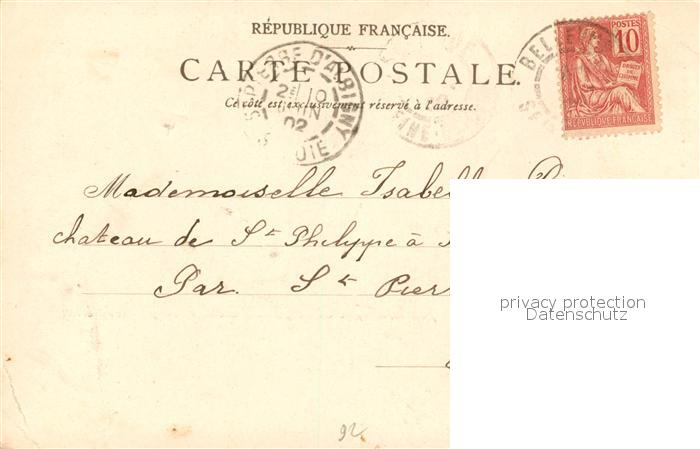 RÉPUBLIQUE FRANÇAISE.
CARTE POSTALE.
Ce côté est exclusivement réservé à l'adresse.
ST PIERRE D'ALBIGNY
2E 10
JUIN
02
POSTES
10
DROITS DE L'HOMME
RÉPUBLIQUE FRANÇAISE
Mademoiselle
chateau de St Philippe à
Par St
privacy protection
Datenschutz
92